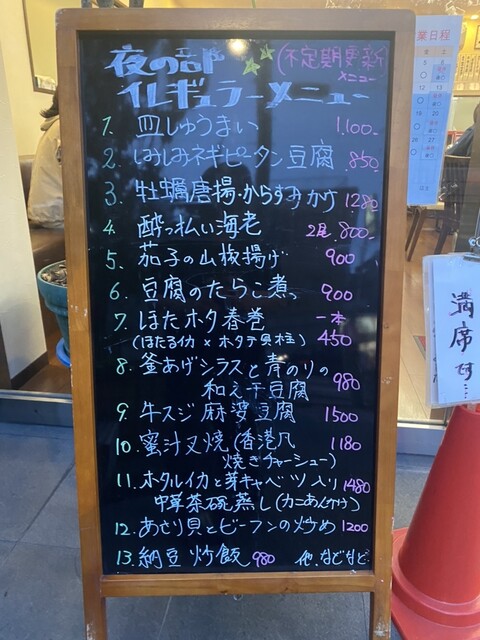 夜の部 (不定期更新
メニュー
イレギュラーメニュー
1. 皿しゅうまい 1,100-
2. しみしみネギピータン豆腐 850-
3. 牡蠣唐揚・からすみかけ 1280
4. 酔っ払い海老 2尾 800-
5. 茄子の山椒揚げ 900
6. 豆腐のたらこ煮 900
7. ほたホタ春巻 一本
(ほたるイカ × ホタテ貝柱) 450
8. 釜あげシラスと青のりの 980
和え干豆腐
9. 牛スジ麻婆豆腐 1500
10. 蜜汁叉焼 (香港風 1180
焼きチャーシュー)
11. ホタルイカと芽キャベツ入り 1480
中華茶碗蒸し (カニあんかけ)
12. あさり貝とビーフンの炒め 1200
13. 納豆炒飯 980 他、などなど
業日程
満席です…